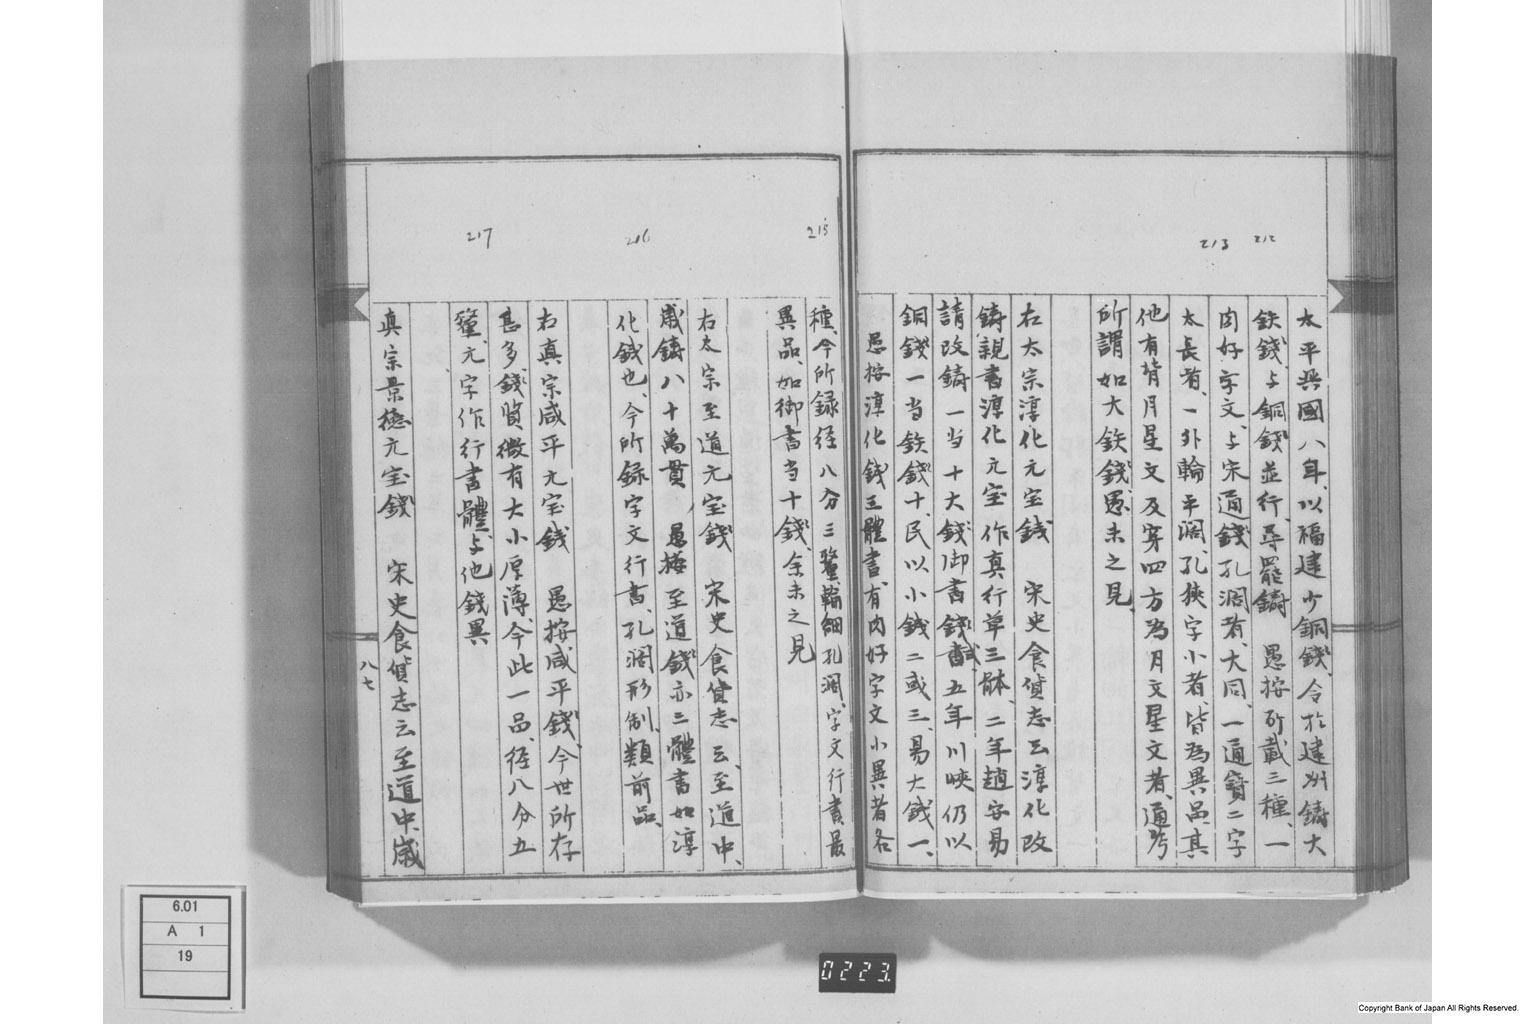 213 212
太平興國八年、以福建少銅錢、令於建州鑄大
鉄錢、与銅錢並行、尋罷鑄　愚按所載三種、一
肉好字文、与宋通錢孔濶者、大同、一通寶二字
太長者、一外輪平濶、孔狹字小者、皆為異品其
他有背月星文及穿四方為月文星文者、通考
所謂如大鉄錢、愚未之見
右太宗淳化元宝銭　宋史食貨志云淳化改
鑄、親書淳化元宝作真行草三体、二年趙安易
請改鑄一当十大錢御書錢式、五年川峽仍以
銅錢一当鉄錢十、民以小錢二或三、易大銭一、
愚按淳化錢三體書、有肉好字文小異者各
215 216 217
種、今所録径八分三釐、輪細孔濶、字文行書最
異品、如御書当十錢、余未之見
右太宗至道元宝錢　宋史食貨志云、至道中、
歳鑄八十萬貫、愚按至道錢亦三體書如淳
化銭也、今所録字文行書、孔濶形制、類前品、
右真宗咸平元宝銭　愚按咸平錢、今世所存
甚多、錢質微有大小厚薄、今此一品、径八分五
釐、元字作行書體、与他錢異
真宗景徳元宝錢　宋史食貨志云至道中、歳
八七
6.01
A 1
19
0223.
Copyright Bank of Japan All Rights Reserved.